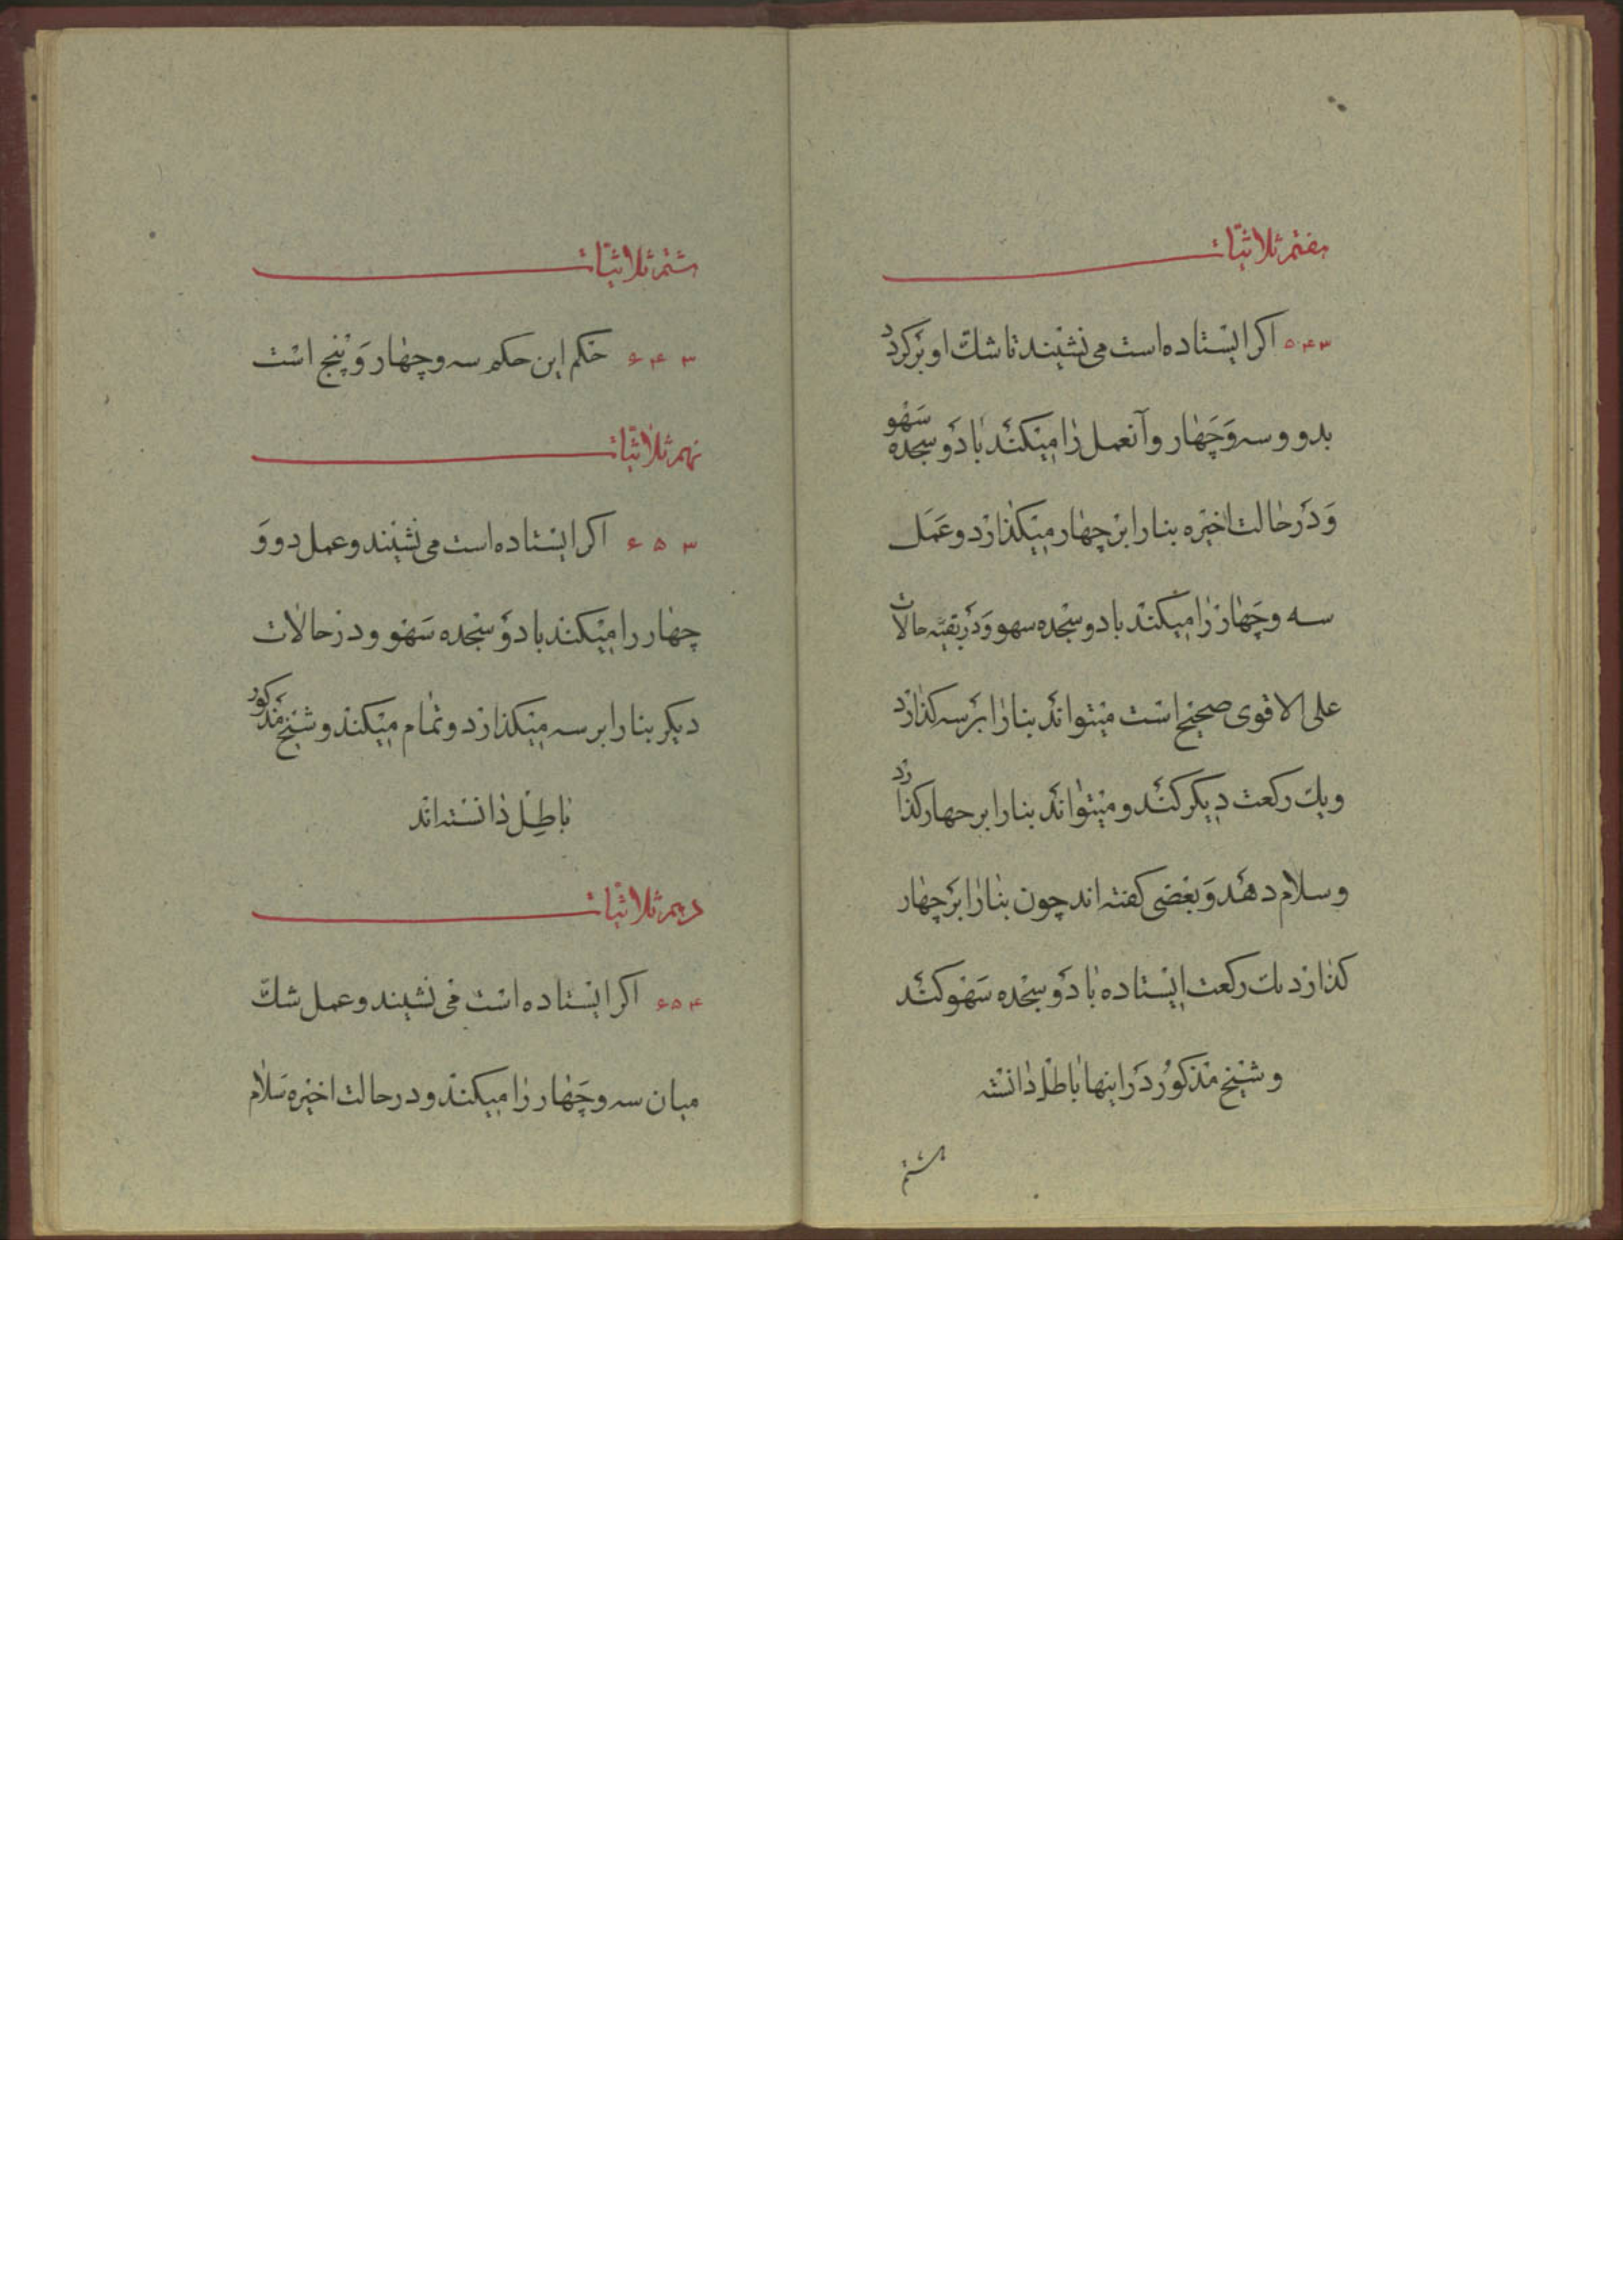 هفتم ثلاثیات
۳ ۴ ۵ اکر ایستاده است می نشیند تا شک او برکردد
بدو و سه و چهار و آنعمل را میکند با دو سجده سهو
و در حالت اخیره بنا را بر چهار میکذارد و عمل
سه و چهار را میکند با دو سجده سهو و در بقیه حالات
علی الاقوی صحیح است میتواند بنا را بر سه کذارد
و یک رکعت دیکر کند و میتواند بنا را بر چهار کذارد
و سلام دهد و بعضی کفته اند چون بنا را بر چهار
کذارد یک رکعت ایستاده با دو سجده سهو کند
و شیخ مذکور در اینها باطل دانسته
هشتم
هشتم ثلاثیات
۳ ۴ ۶ حکم این حکم سه و چهار و پنج است
نهم ثلاثیات
۳ ۵ ۶ اکر ایستاده است می نشیند و عمل دو و
چهار را میکند با دو سجده سهو و در حالات
دیکر بنا را بر سه میکذارد و تمام میکند و شیخ مذکور
باطل دانسته اند
دهم ثلاثیات
۴ ۵ ۶ اکر ایستاده است می نشیند و عمل شک
میان سه و چهار را میکند و در حالت اخیره سلام